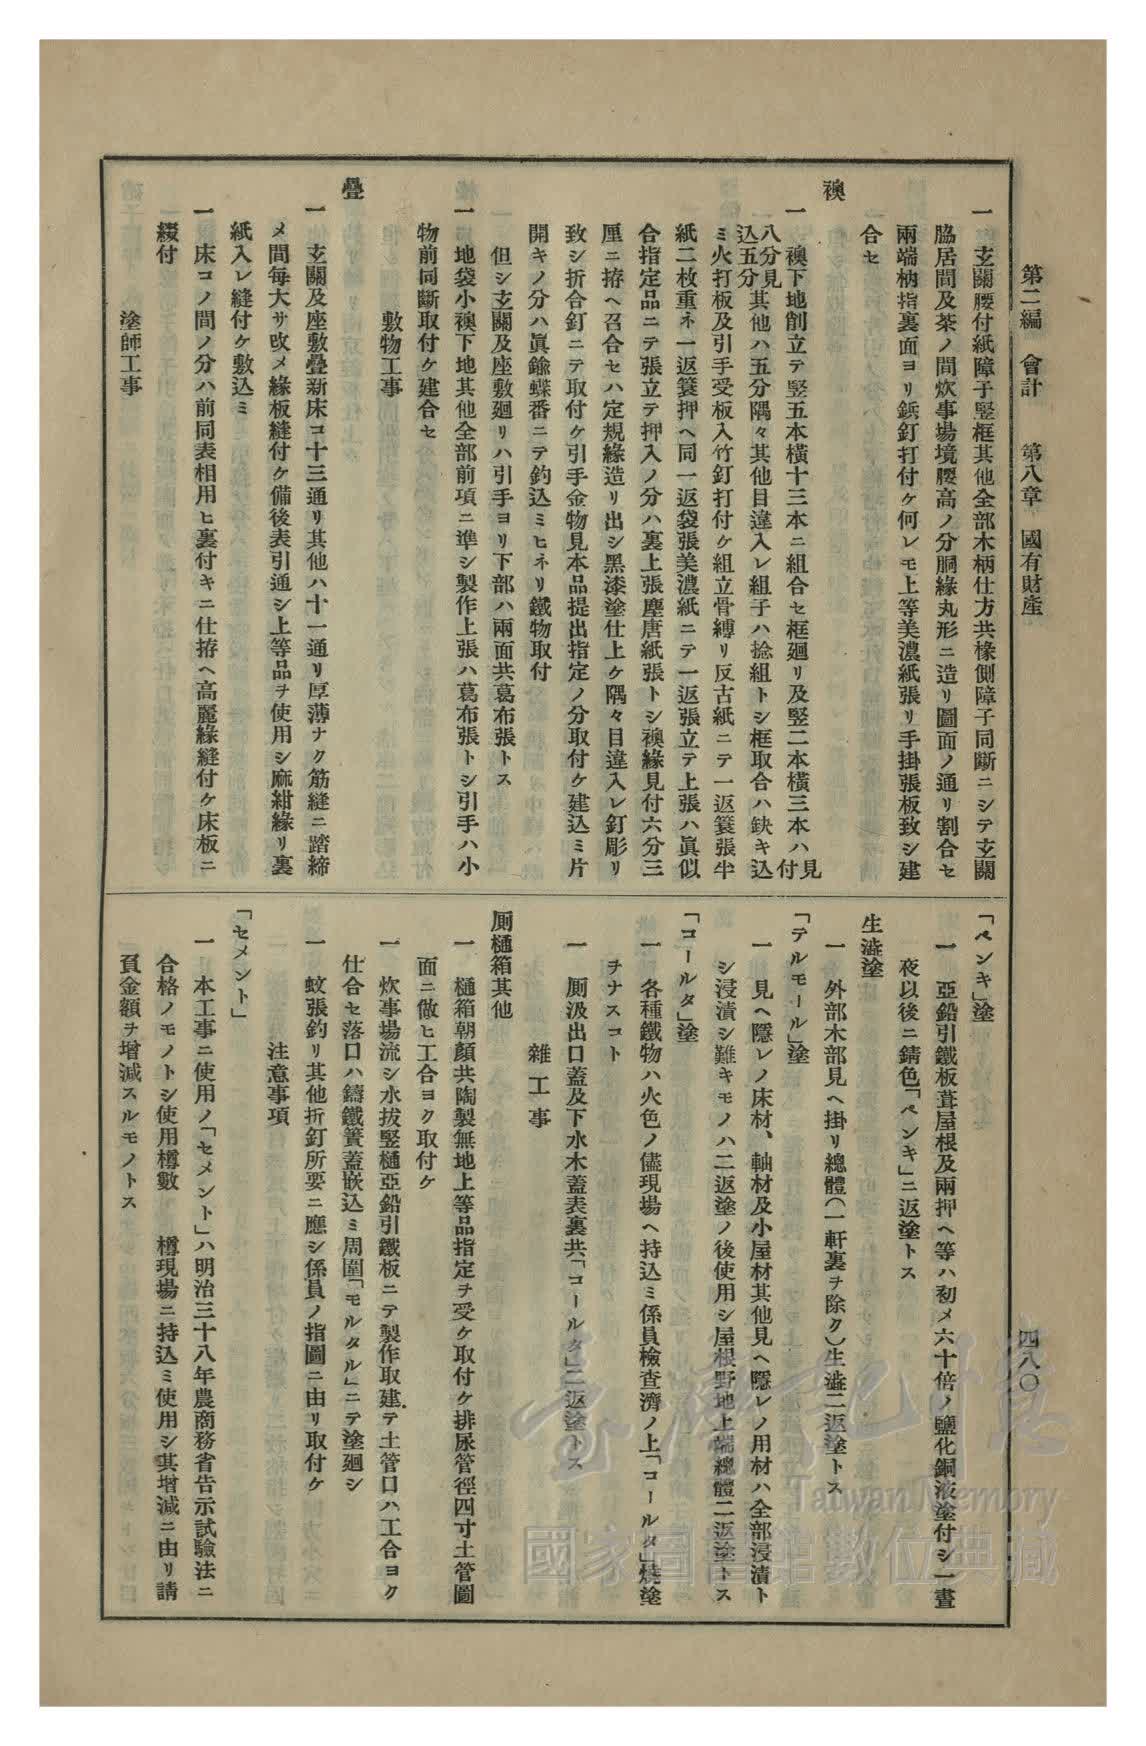 第二編　會計　第八章　國有財產　四八〇
一　玄關腰付紙障子竪框其他全部木柄仕方共椽側障子同斷ニシテ玄關
脇居間及茶ノ間炊事場境腰高ノ分胴緣丸形ニ造リ圖面ノ通リ割合セ
兩端枘指裏面ヨリ鋲釘打付ケ何レモ上等美濃紙張リ手掛張板致シ建
合セ
襖
一　襖下地削立テ竪五本橫十三本ニ組合セ框廻リ及竪二本橫三本ハ見付
八分見込五分其他ハ五分隅々其他目違入レ組子ハ捻組トシ框取合ハ鈌キ込
ミ火打板及引手受板入竹釘打付ケ組立骨縛リ反古紙ニテ一返簑張半
紙二枚重ネ一返簑押ヘ同一返袋張美濃紙ニテ一返張立テ上張ハ眞似
合指定品ニテ張立テ押入ノ分ハ裏上張塵唐紙張トシ襖緣見付六分三
厘ニ拵ヘ召合セハ定規緣造リ出シ黑漆塗仕上ケ隅々目違入レ釘彫リ
致シ折合釘ニテ取付ケ引手金物見本品提出指定ノ分取付ケ建込ミ片
開キノ分ハ眞鍮蝶番ニテ釣込ミヒネリ鐵物取付
但シ玄關及座敷廻リハ引手ヨリ下部ハ兩面共葛布張トス
一　地袋小襖下地其他全部前項ニ準シ製作上張ハ葛布張トシ引手ハ小
物前同斷取付ケ建合セ
敷物工事
疊
一　玄關及座敷疊新床コ十三通リ其他ハ十一通リ厚薄ナク筋縫ニ踏締
メ間每大サ改メ緣板縫付ケ備後表引通シ上等品ヲ使用シ麻紺緣リ裏
紙入レ縫付ケ敷込ミ
一　床コノ間ノ分ハ前同表相用ヒ裏付キニ仕拵ヘ高麗緣縫付ケ床板ニ
綴付
塗師工事
「ペンキ」塗
一　亞鉛引鐵板葺屋根及兩押ヘ等ハ初メ六十倍ノ鹽化銅液塗付シ一晝
夜以後ニ錆色「ペンキ」ニ返塗トス
生澁塗
一　外部木部見ヘ掛リ總體(一軒裏ヲ除ク)生澁二返塗トス
「テルモール」塗
一　見ヘ隱レノ床材、軸材及小屋材其他見ヘ隱レノ用材ハ全部浸漬ト
シ浸漬シ難キモノハ二返塗ノ後使用シ屋根野地上端總體二返塗トス
「コールタ」塗
一　各種鐵物ハ火色ノ儘現場ヘ持込ミ係員檢查濟ノ上「コールタ」燒塗
ヲナスコト
一　厠汲出口蓋及下水木蓋表裏共「コールタ」二返塗トス
雜工事
厠樋箱其他
一　樋箱朝顏共陶製無地上等品指定ヲ受ケ取付ケ排尿管徑四寸土管圖
面ニ倣ヒ工合ヨク取付ケ
一　炊事場流シ水拔竪樋亞鉛引鐵板ニテ製作取建テ土管口ハ工合ヨク
仕合セ落口ハ鑄鐵簀蓋嵌込ミ周圍「モルタル」ニテ塗廻シ
一　蚊張釣リ其他折釘所要ニ應シ係員ノ指圖ニ由リ取付ケ
注意事項
「セメント」
一　本工事ニ使用ノ「セメント」ハ明治三十八年農商務省吿示試驗法ニ
合格ノモノトシ使用樽數　樽現場ニ持込ミ使用シ其增減ニ由リ請
負金額ヲ增減スルモノトス
臺灣記憶
Taiwan Memory
國家圖書館數位典藏